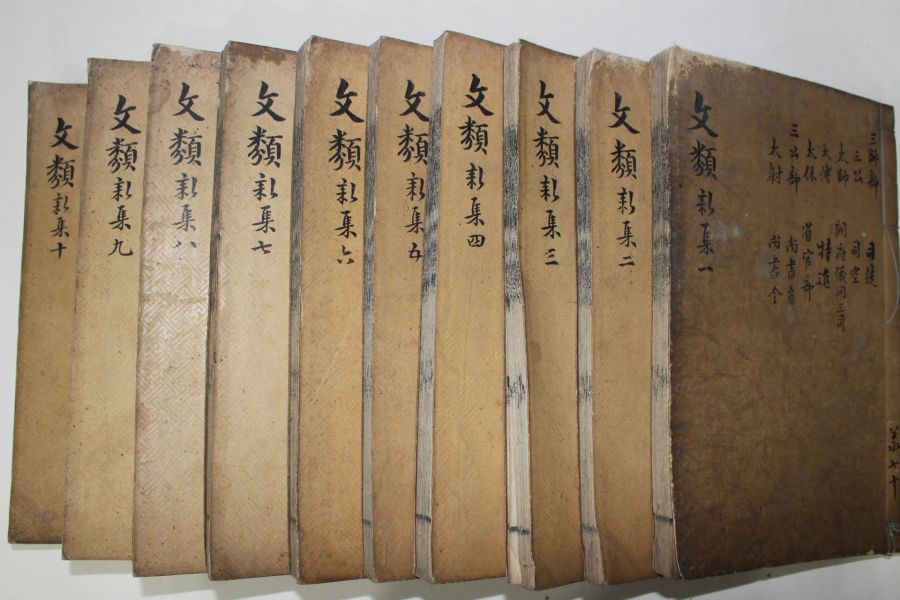 三師部 司徒
三公 司空
太師 開府儀同三司
太傅 特進
太保 省官部
三公部 尚書省
太尉 尚書令
文類新集一
文類新集二
文類新集三
文類新集四
文類新集五
文類新集六
文類新集七
文類新集八
文類新集九
文類新集十